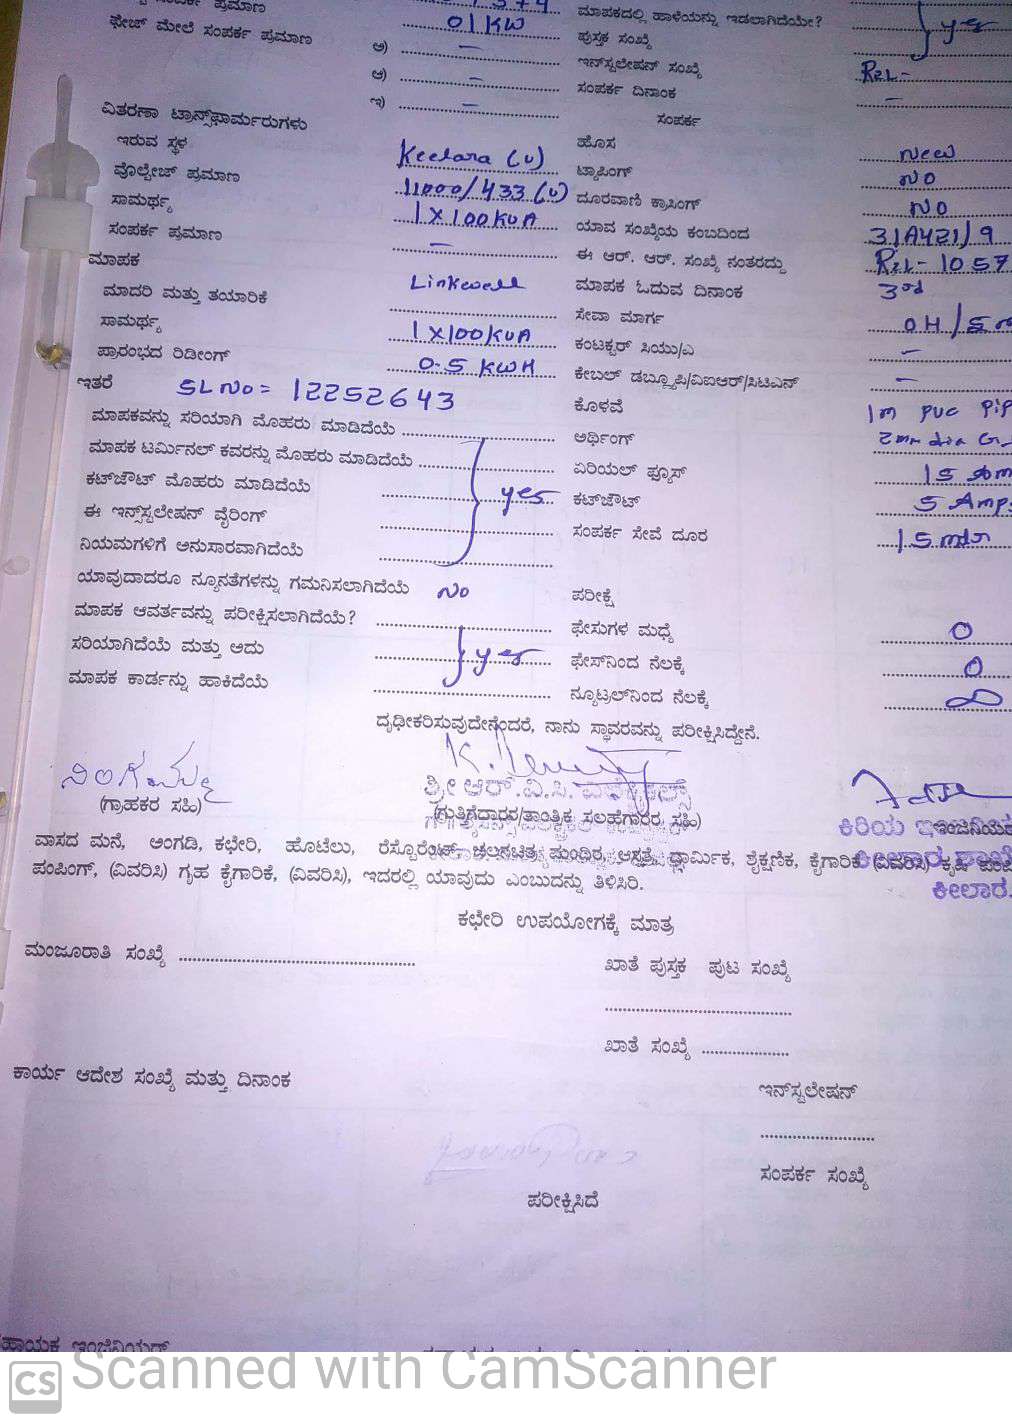 ಸಂಪರ್ಕ ಪ್ರಮಾಣ
ಫೇಜ್ ಮೇಲೆ ಸಂಪರ್ಕ ಪ್ರಮಾಣ 01 KW ಮಾಪಕದಲ್ಲಿ ಹಾಳೆಯನ್ನು ಇಡಲಾಗಿದೆಯೇ? yes
ಅ) – ಪುಸ್ತಕ ಸಂಖ್ಯೆ
ಆ) – ಇನ್‌ಸ್ಟಲೇಷನ್ ಸಂಖ್ಯೆ RzL-
ಇ) – ಸಂಪರ್ಕ ದಿನಾಂಕ –
ವಿತರಣಾ ಟ್ರಾನ್ಸ್‌ಫಾರ್ಮರುಗಳು ಸಂಪರ್ಕ
ಇರುವ ಸ್ಥಳ Keelara (U) ಹೊಸ New
ವೊಲ್ಟೇಜ್ ಪ್ರಮಾಣ 11000/433 (U) ಟ್ಯಾಪಿಂಗ್ NO
ಸಾಮರ್ಥ್ಯ 1 X 100 KUA ದೂರವಾಣಿ ಕ್ರಾಸಿಂಗ್ NO
ಸಂಪರ್ಕ ಪ್ರಮಾಣ – ಯಾವ ಸಂಖ್ಯೆಯ ಕಂಬದಿಂದ 31A421/9
ಮಾಪಕ ಈ ಆರ್. ಆರ್. ಸಂಖ್ಯೆ ನಂತರದ್ದು RzL- 1057
ಮಾದರಿ ಮತ್ತು ತಯಾರಿಕೆ Linkwell ಮಾಪಕ ಓದುವ ದಿನಾಂಕ 3rd
ಸಾಮರ್ಥ್ಯ 1 X 100 KUA ಸೇವಾ ಮಾರ್ಗ OH /
ಪ್ರಾರಂಭದ ರಿಡೀಂಗ್ 0.5 KWH ಕಂಟಕ್ಟರ್ ಸಿಯು/ಎ –
ಇತರೆ SL No = 12252643 ಕೇಬಲ್ ಡಬ್ಲ್ಯೂಪಿ/ವಿಐಆರ್/ಸಿಟಿಎನ್ –
ಮಾಪಕವನ್ನು ಸರಿಯಾಗಿ ಮೊಹರು ಮಾಡಿದೆಯೆ ಕೊಳವೆ 1m PVC Pip
ಮಾಪಕ ಟರ್ಮಿನಲ್ ಕವರನ್ನು ಮೊಹರು ಮಾಡಿದೆಯೆ ಅರ್ಥಿಂಗ್ 2mm dia G
ಕಟ್‌ಔಟ್ ಮೊಹರು ಮಾಡಿದೆಯೆ yes ಏರಿಯಲ್ ಫ್ಯೂಸ್ 15 Am
ಈ ಇನ್ಸ್‌ಸ್ಟಲೇಷನ್ ವೈರಿಂಗ್ ಕಟ್‌ಔಟ್ 5 Amp
ನಿಯಮಗಳಿಗೆ ಅನುಸಾರವಾಗಿದೆಯೆ ಸಂಪರ್ಕ ಸೇವೆ ದೂರ 15 mtr
ಯಾವುದಾದರೂ ನ್ಯೂನತೆಗಳನ್ನು ಗಮನಿಸಲಾಗಿದೆಯೆ No ಪರೀಕ್ಷೆ
ಮಾಪಕ ಆವರ್ತವನ್ನು ಪರೀಕ್ಷಿಸಲಾಗಿದೆಯೆ? ಫೇಸುಗಳ ಮಧ್ಯೆ 0
ಸರಿಯಾಗಿದೆಯೆ ಮತ್ತು ಅದು yes ಫೇಸ್‌ನಿಂದ ನೆಲಕ್ಕೆ 0
ಮಾಪಕ ಕಾರ್ಡನ್ನು ಹಾಕಿದೆಯೆ ನ್ಯೂಟ್ರಲ್‌ನಿಂದ ನೆಲಕ್ಕೆ ∞
ದೃಢೀಕರಿಸುವುದೇನೆಂದರೆ, ನಾನು ಸ್ಥಾವರವನ್ನು ಪರೀಕ್ಷಿಸಿದ್ದೇನೆ.
ನಿಂಗಮ್ಮ
ಶ್ರೀ ಆರ್.ವಿ.ಸಿ.
(ಗ್ರಾಹಕರ ಸಹಿ) (ಗುತ್ತಿಗೆದಾರರ/ತಾಂತ್ರಿಕ ಸಲಹೆಗಾರರ ಸಹಿ) ಕಿರಿಯ ಇಂಜಿನಿಯರ್
ವಾಸದ ಮನೆ, ಅಂಗಡಿ, ಕಛೇರಿ, ಹೊಟೆಲು, ರೆಸ್ಟೊರೆಂಟ್, ಚಲನಚಿತ್ರ ಮಂದಿರ, ಆಸ್ಪತ್ರೆ, ಧಾರ್ಮಿಕ, ಶೈಕ್ಷಣಿಕ, ಕೈಗಾರಿಕೆ (ವಿವರಿಸಿ) ಕೃಷಿ ಪಂಪ್
ಪಂಪಿಂಗ್, (ವಿವರಿಸಿ) ಗೃಹ ಕೈಗಾರಿಕೆ, (ವಿವರಿಸಿ), ಇದರಲ್ಲಿ ಯಾವುದು ಎಂಬುದನ್ನು ತಿಳಿಸಿರಿ.
ಕೀಲಾರ ಶಾಖೆ
ಕೀಲಾರ.
ಕಛೇರಿ ಉಪಯೋಗಕ್ಕೆ ಮಾತ್ರ
ಮಂಜೂರಾತಿ ಸಂಖ್ಯೆ ಖಾತೆ ಪುಸ್ತಕ ಪುಟ ಸಂಖ್ಯೆ
ಖಾತೆ ಸಂಖ್ಯೆ
ಕಾರ್ಯ ಆದೇಶ ಸಂಖ್ಯೆ ಮತ್ತು ದಿನಾಂಕ ಇನ್‌ಸ್ಟಲೇಷನ್
ಸಂಪರ್ಕ ಸಂಖ್ಯೆ
ಪರೀಕ್ಷಿಸಿದೆ
ಸಹಾಯಕ ಇಂಜಿನಿಯರ್
CS Scanned with CamScanner